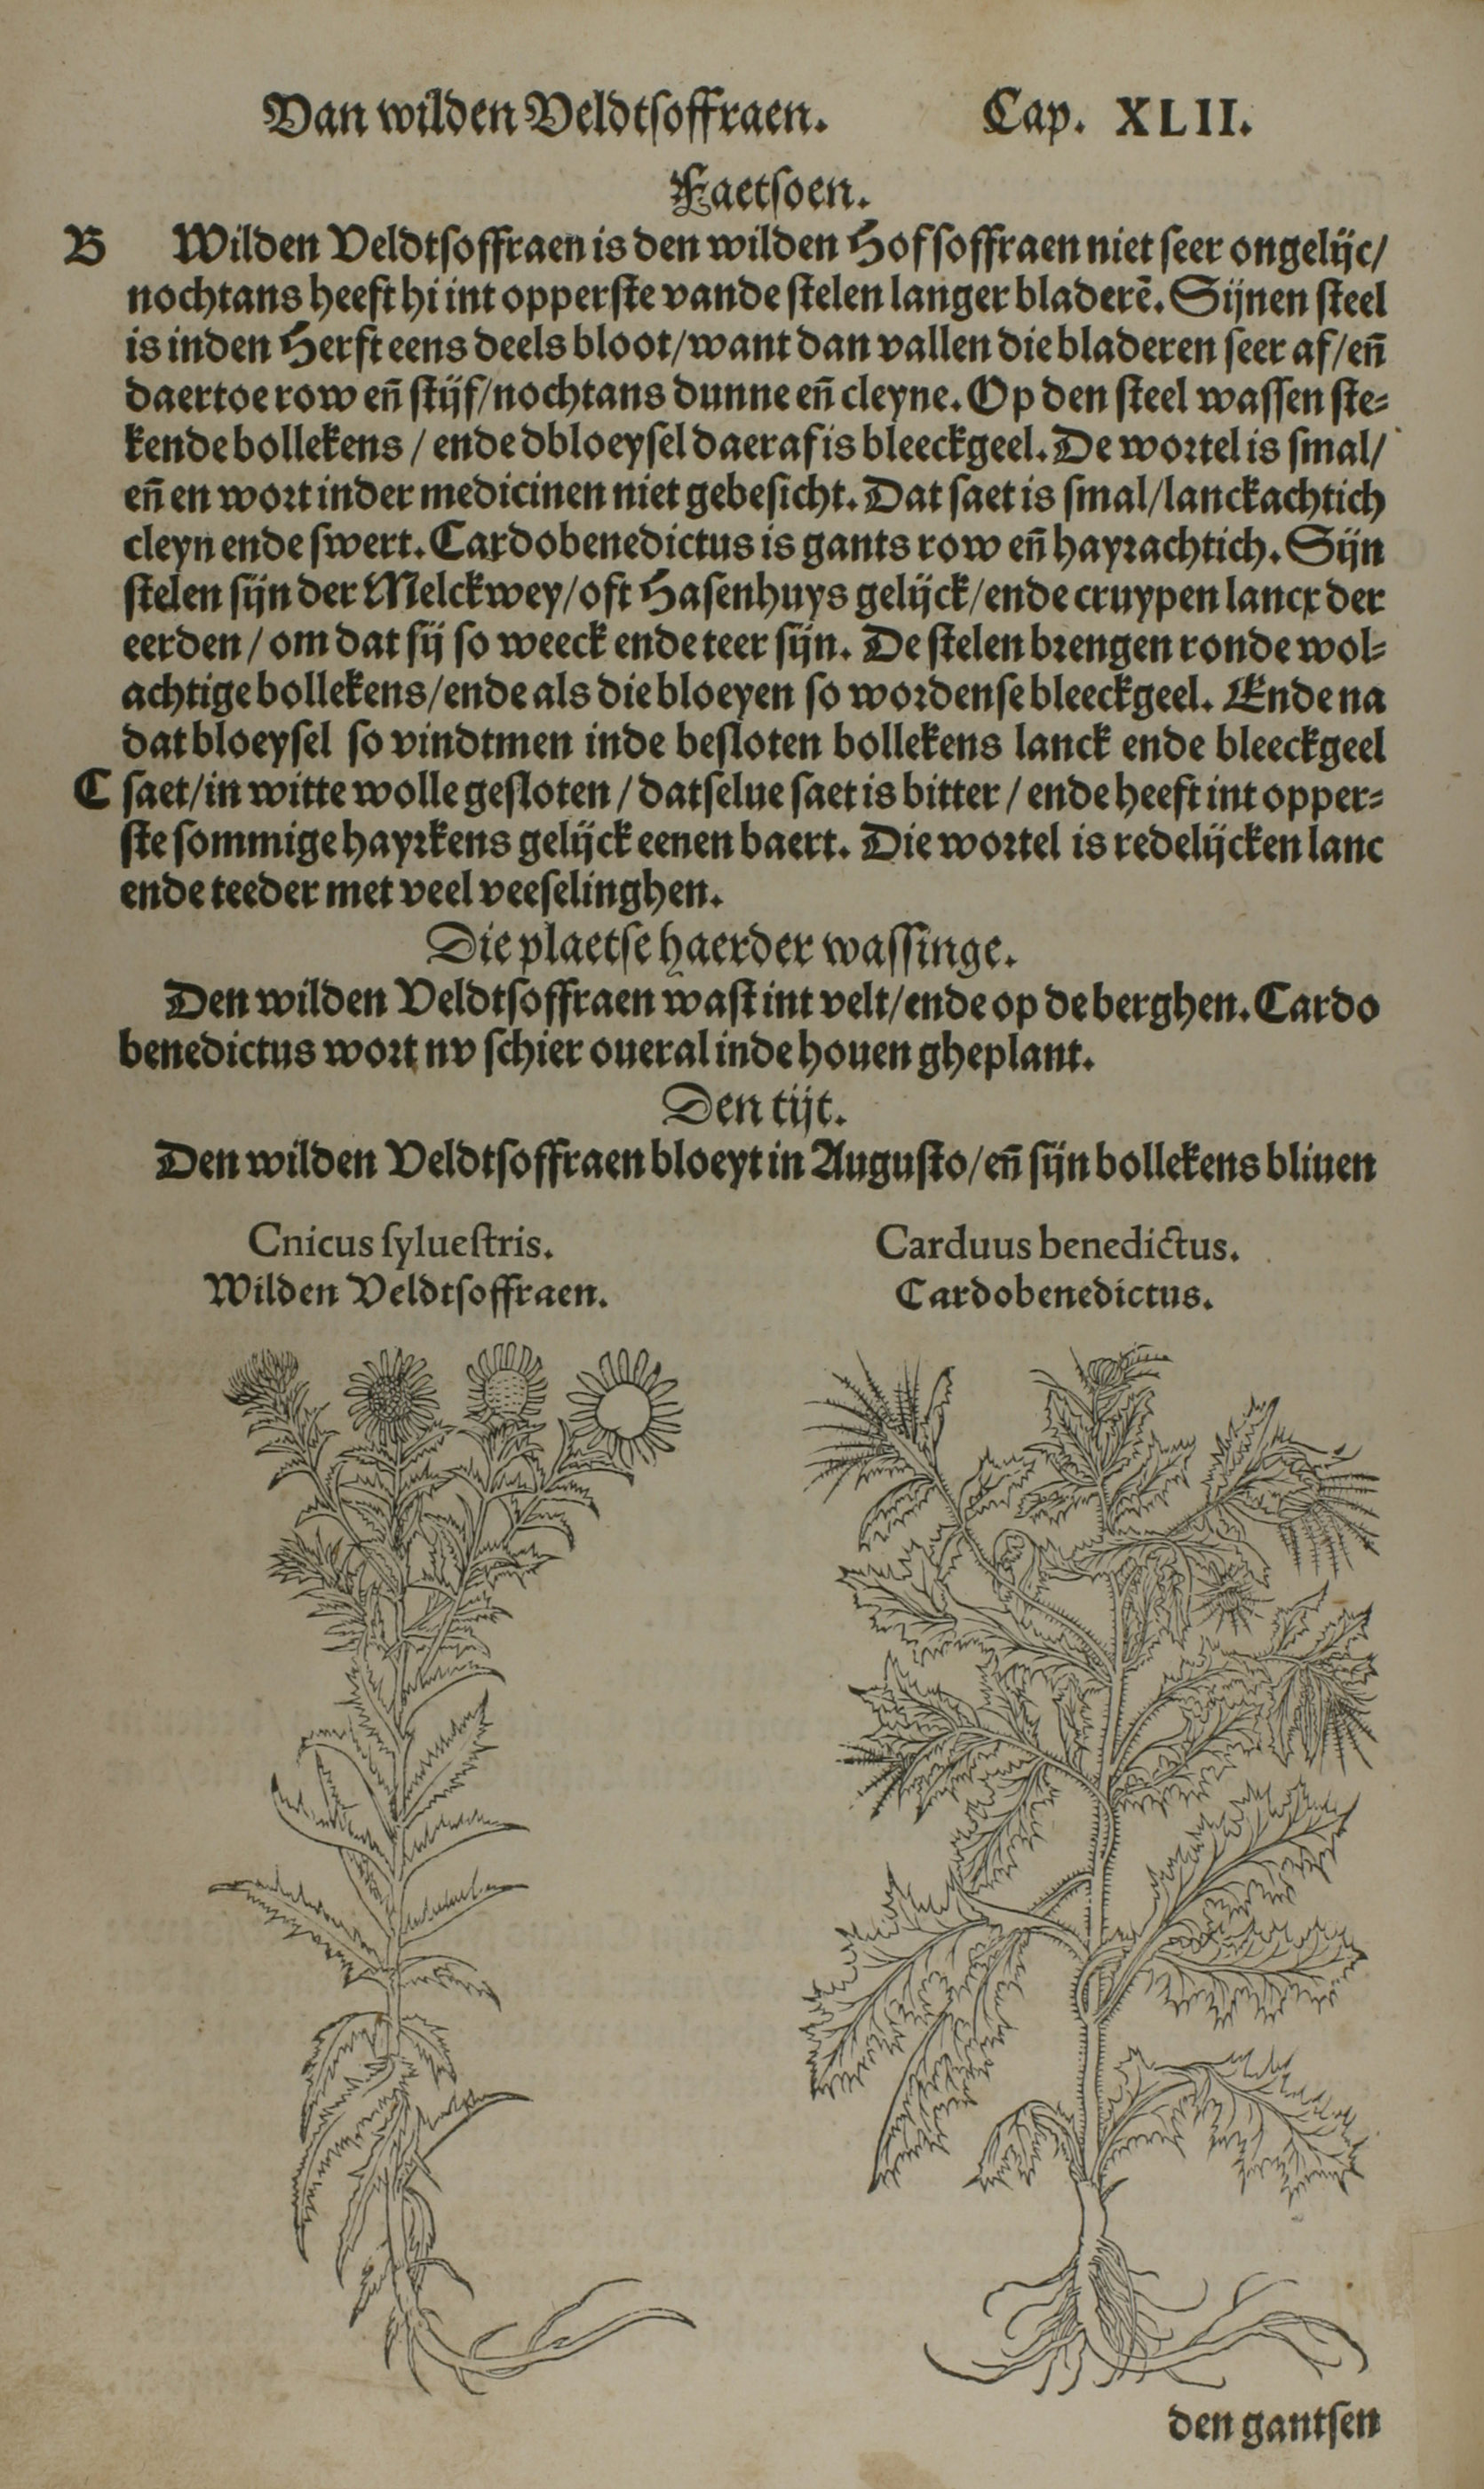 Van wilden Veldtsoffraen. Cap. XLII.
Faetsoen.
B Wilden Veldtsoffraen is den wilden Hofsoffraen niet seer ongelijc/
nochtans heeft hi int opperste vande stelen langer bladerē. Sijnen steel
is inden Herfst eens deels bloot/want dan vallen die bladeren seer af/en̄
daertoe row en̄ stijf/nochtans dunne en̄ cleyne. Op den steel wassen ste⸗
kende bollekens / ende dbloeysel daeraf is bleeckgeel. De wortel is smal/
en̄ en wort inder medicinen niet gebesicht. Dat saet is smal/lanckachtich
cleyn ende swert. Cardobenedictus is gants row en̄ hayrachtich. Sijn
stelen sijn der Melckwey/oft Hasenhuys gelijck/ende cruypen lancx der
eerden / om dat sij so weeck ende teer sijn. De stelen brengen ronde wol⸗
achtige bollekens/ende als die bloeyen so wordense bleeckgeel. Ende na
dat bloeysel so vindtmen inde besloten bollekens lanck ende bleeckgeel
C saet/in witte wolle gesloten / datselue saet is bitter / ende heeft int opper⸗
ste sommige hayrkens gelijck eenen baert. Die wortel is redelijcken lanc
ende teeder met veel veeselinghen.
Die plaetse haerder wassinge.
Den wilden Veldtsoffraen wast int velt/ende op de berghen. Cardo
benedictus wort nv schier oueral inde houen gheplant.
Den tijt.
Den wilden Veldtsoffraen bloeyt in Augusto/en̄ sijn bollekens bliuen
Cnicus syluestris.
Wilden Veldtsoffraen.
Carduus benedictus.
Cardobenedictus.
den gantsen